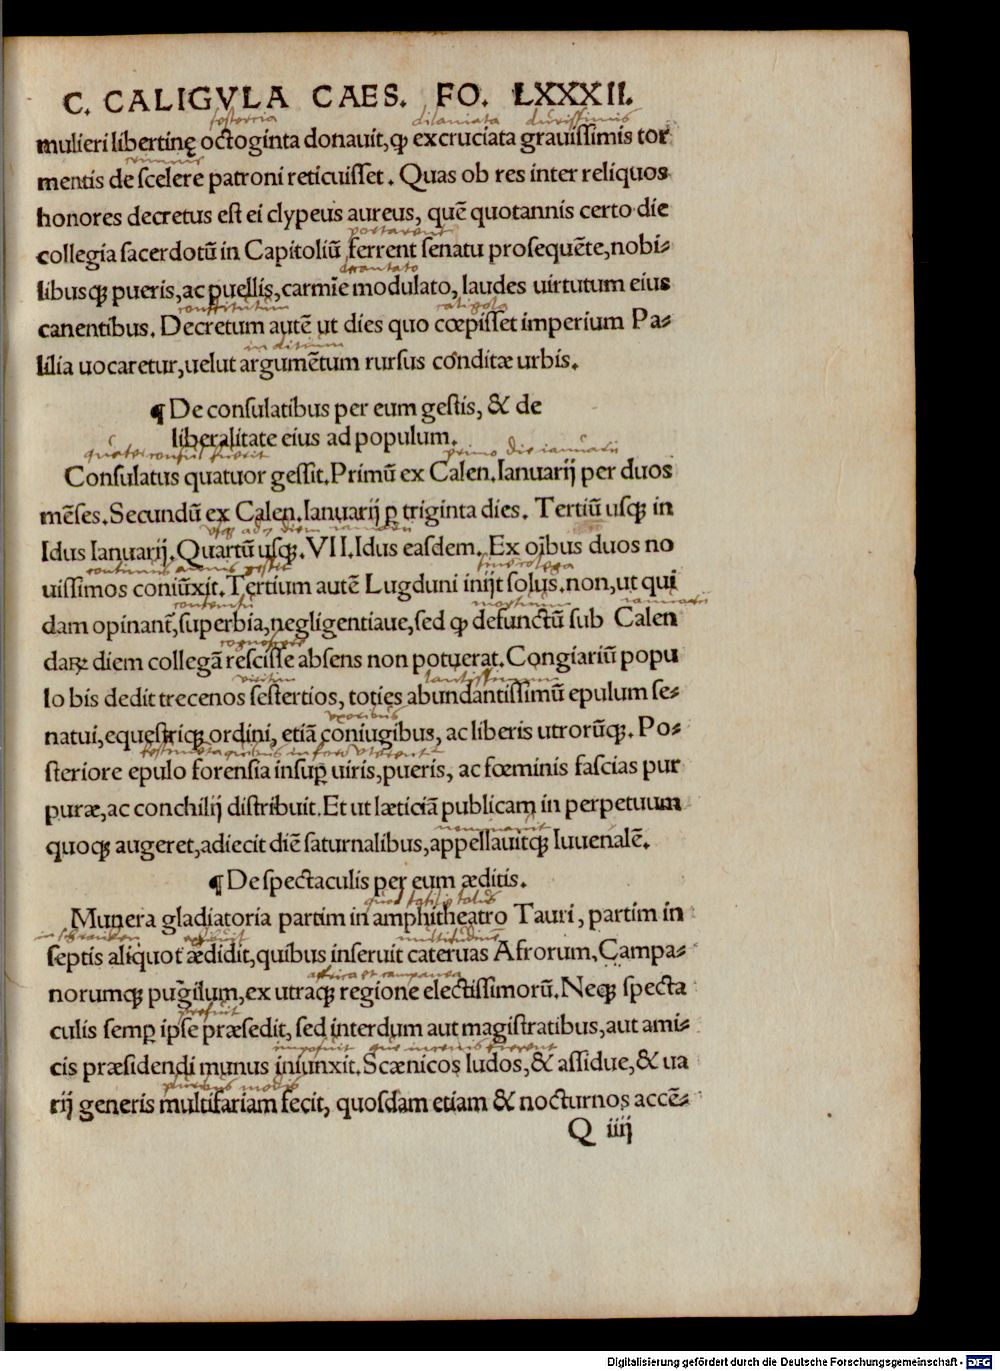 C. CALIGVLA CAES. FO. LXXXII.
sestercia dilaniata durissimis
mulieri libertinę octoginta donauit, ꝙ excruciata grauissimis tor
mentis de scelere patroni reticuisset. Quas ob res inter reliquos
honores decretus est ei clypeus aureus, quē quotannis certo die
collegia sacerdotū in Capitoliū ferrent senatu prosequēte, nobi⸗
portarent
decantato
libusqꝫ pueris, ac puellis, carmīe modulato, laudes uirtutum eius
constitutum caligola
canentibus. Decretum autē ut dies quo cœpisset imperium Pa⸗
inditium
lilia uocaretur, uelut argumētum rursus conditæ urbis.
¶ De consulatibus per eum gestis, & de
liberalitate eius ad populum.
quater consul fuerit primo die ianuarii
Consulatus quatuor gessit. Primū ex Calen. Ianuarij per duos
mēses. Secundū ex Calen. Ianuarij ꝑ triginta dies. Tertiū usqꝫ in
Idus Ianuarij. Quartū usqꝫ. VII. Idus easdem. Ex oībus duos no
sine collega
uissimos coniūxit. Tertium autē Lugduni inijt solus. non, ut qui
dam opinant̄, superbia, negligentiaue, sed ꝙ defunctū sub Calen
cognoscere
daꝝ diem collegā rescisse absens non potuerat. Congiariū popu
viritim lautissimum
lo bis dedit trecenos sestertios, toties abundantissimū epulum se⸗
uxoribus
natui, equestriqꝫ ordini, etiā coniugibus, ac liberis utrorūqꝫ. Po⸗
steriore epulo forensia insuꝑ uiris, pueris, ac fœminis fascias pur
puræ, ac conchilij distribuit. Et ut læticiā publicam in perpetuum
nominauit
quoqꝫ augeret, adiecit diē saturnalibus, appellauitqꝫ Iuuenalē.
¶ De spectaculis per eum æditis.
Munera gladiatoria partim in amphitheatro Tauri, partim in
multitudinē
septis aliquot ædidit, quibus inseruit cateruas Afrorum, Campa⸗
africa et campanea
norumqꝫ pugilum, ex utraqꝫ regione electissimorū. Neqꝫ specta
prefuit
culis semꝑ ipse præsedit, sed interdum aut magistratibus, aut ami⸗
imposuit que in cenis fierent
cis præsidendi munus iniunxit. Scænicos ludos, & assidue, & ua
pluribus modis
rij generis multifariam fecit, quosdam etiam & nocturnos accē⸗
Q iiij
Digitalisierung gefördert durch die Deutsche Forschungsgemeinschaft - DFG